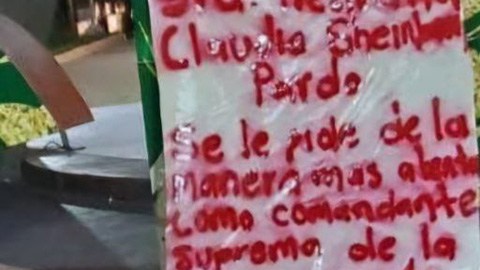 Claudia Sheinbaum
Pardo
Se le pide de la
manera mas atenta
como comandante
suprema de la